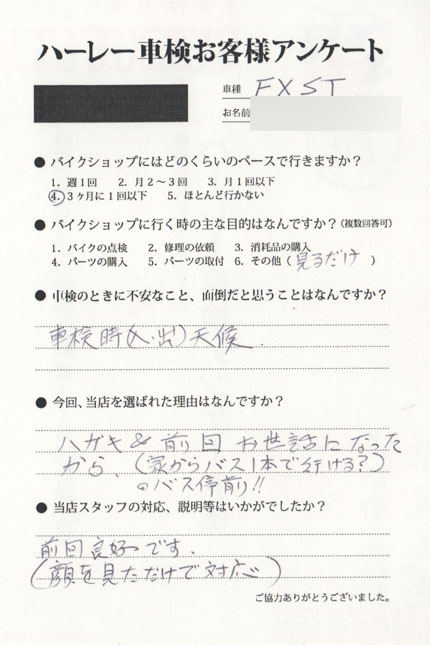 ハーレー車検お客様アンケート
車種 FXST
お名前
● バイクショップにはどのくらいのペースで行きますか？
1. 週1回 2. 月2～3回 3. 月1回以下
4. 3ヶ月に1回以下 5. ほとんど行かない
● バイクショップに行く時の主な目的はなんですか？（複数回答可）
1. バイクの点検 2. 修理の依頼 3. 消耗品の購入
4. パーツの購入 5. パーツの取付 6. その他（見るだけ）
● 車検のときに不安なこと、面倒だと思うことはなんですか？
車検時（入、出）天候．
● 今回、当店を選ばれた理由はなんですか？
ハガキ＆前回お世話になった
から、（家からバス1本で行ける？）
◎バス停前!!
● 当店スタッフの対応、説明等はいかがでしたか？
前回良好です．
（顔を見ただけで対応）
ご協力ありがとうございました。